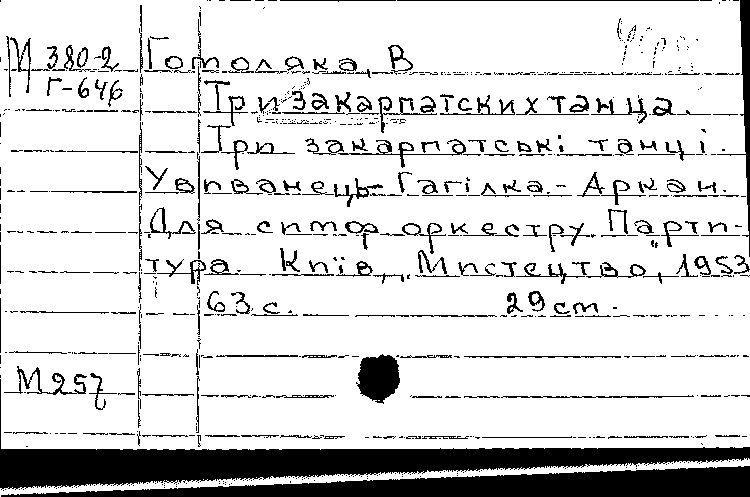 М 380-2
Г-646
Готоляка, В
Три закарпатских танца.
Три закарпатські танці.
Увиванець - Гагілка. - Аркан.
Для симф оркестру. Парти-
тура. Київ, „Мистецтво, 1953
63 с. 29 cm.
М 257